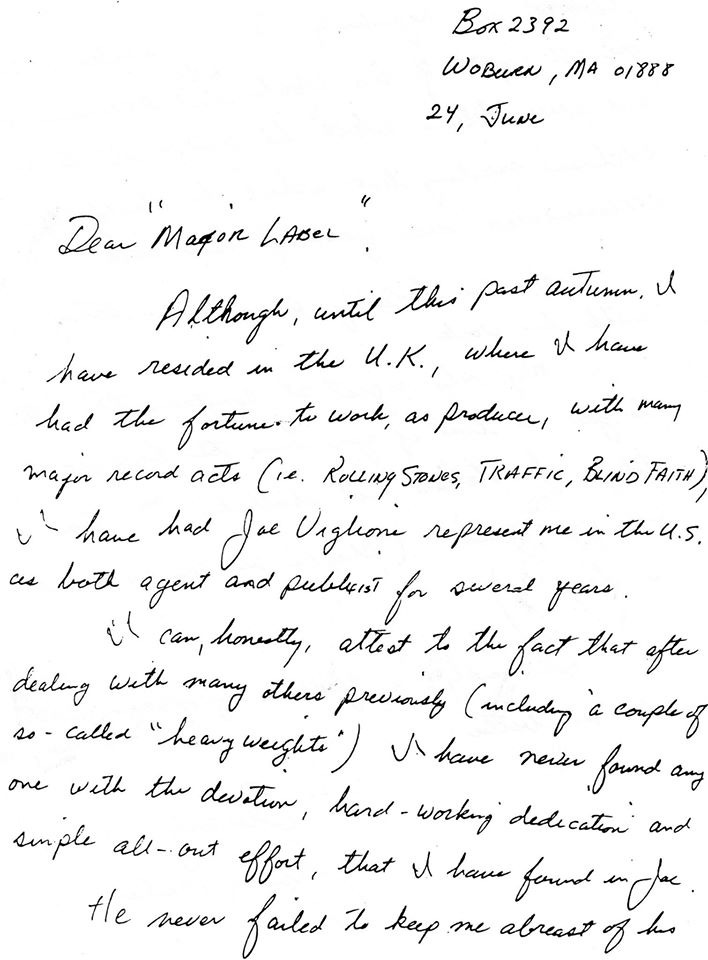 Box 2392
WOBURN, MA 01888
24, JUNE
Dear "MAJOR LABEL",
Although, until this past autumn, I
have resided in the U.K., where I have
had the fortune to work, as producer, with many
major record acts (i.e. ROLLING STONES, TRAFFIC, BLIND FAITH),
I have had Joe Viglione represent me in the U.S.
as both agent and publicist for several years.
I can, honestly, attest to the fact that after
dealing with many others previously (including a couple of
so-called "heavyweights") I have never found any
one with the devotion, hard-working dedication and
simple all-out effort, that I have found in Joe.
He never failed to keep me abreast of his